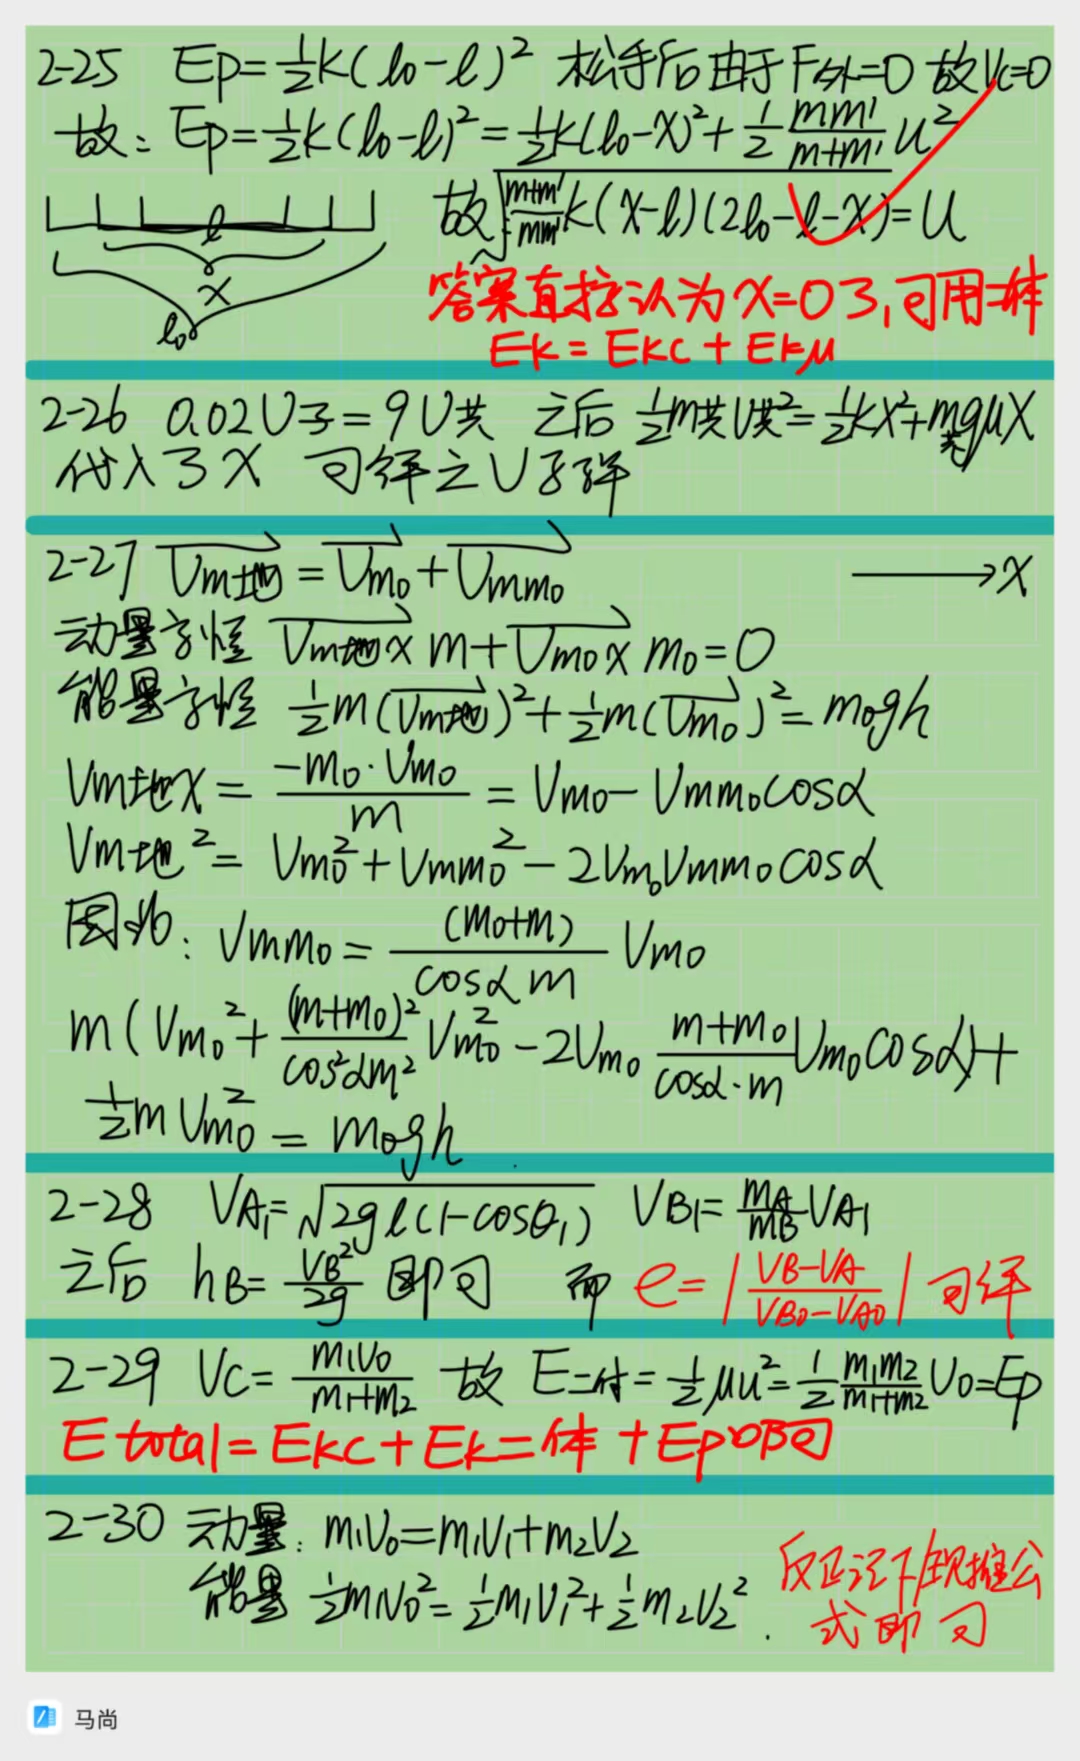 2-25 Ep=½k(l₀-l)² 松手后由于F外=0 故Vc=0
故: Ep=½k(l₀-l)²=½k(l₀-x)²+½ mm'/(m+m') u²
故 √((m+m')/mm' k(x-l)(2l₀-l-x))=u
l
x
l₀
答案直接认为x=0了,可用二体
Ek=Ekc+Ekμ
2-26 0.02U子=9U共 之后 ½m共V共²=½kx²+m共gμx
代入了x 可得之U子弹
2-27 Vm地=Vm₀+Vmm₀ →x
动量守恒 Vm地x m+Vm₀x m₀=0
能量守恒 ½m(Vm地)²+½m(Vm₀)²=m₀gh
Vm地x=(-m₀·Vm₀)/m=Vm₀-Vmm₀cosα
Vm地²=Vm₀²+Vmm₀²-2Vm₀Vmm₀cosα
因此: Vmm₀=(m₀+m)/(cosα m) Vm₀
m(Vm₀²+(m+m₀)²/(cos²αm²) Vm₀²-2Vm₀ (m+m₀)/(cosα·m) Vm₀cosα)+
½mVm₀²=m₀gh
2-28 VA₁=√(2gl(1-cosθ₁)) VB₁=mA/mB VA₁
之后 hB=VB²/2g 即可 而 e=|(VB-VA)/(VB₀-VA₀)| 可得
2-29 Vc=m₁v₀/(m₁+m₂) 故 E二体=½μu²=½ m₁m₂/(m₁+m₂) U₀=Ep
E total=Ekc+Ek二体+Ep即可
2-30 动量: m₁V₀=m₁V₁+m₂V₂
能量 ½m₁V₀²=½m₁V₁²+½m₂V₂².
反正记下/现推公
式即可
马尚